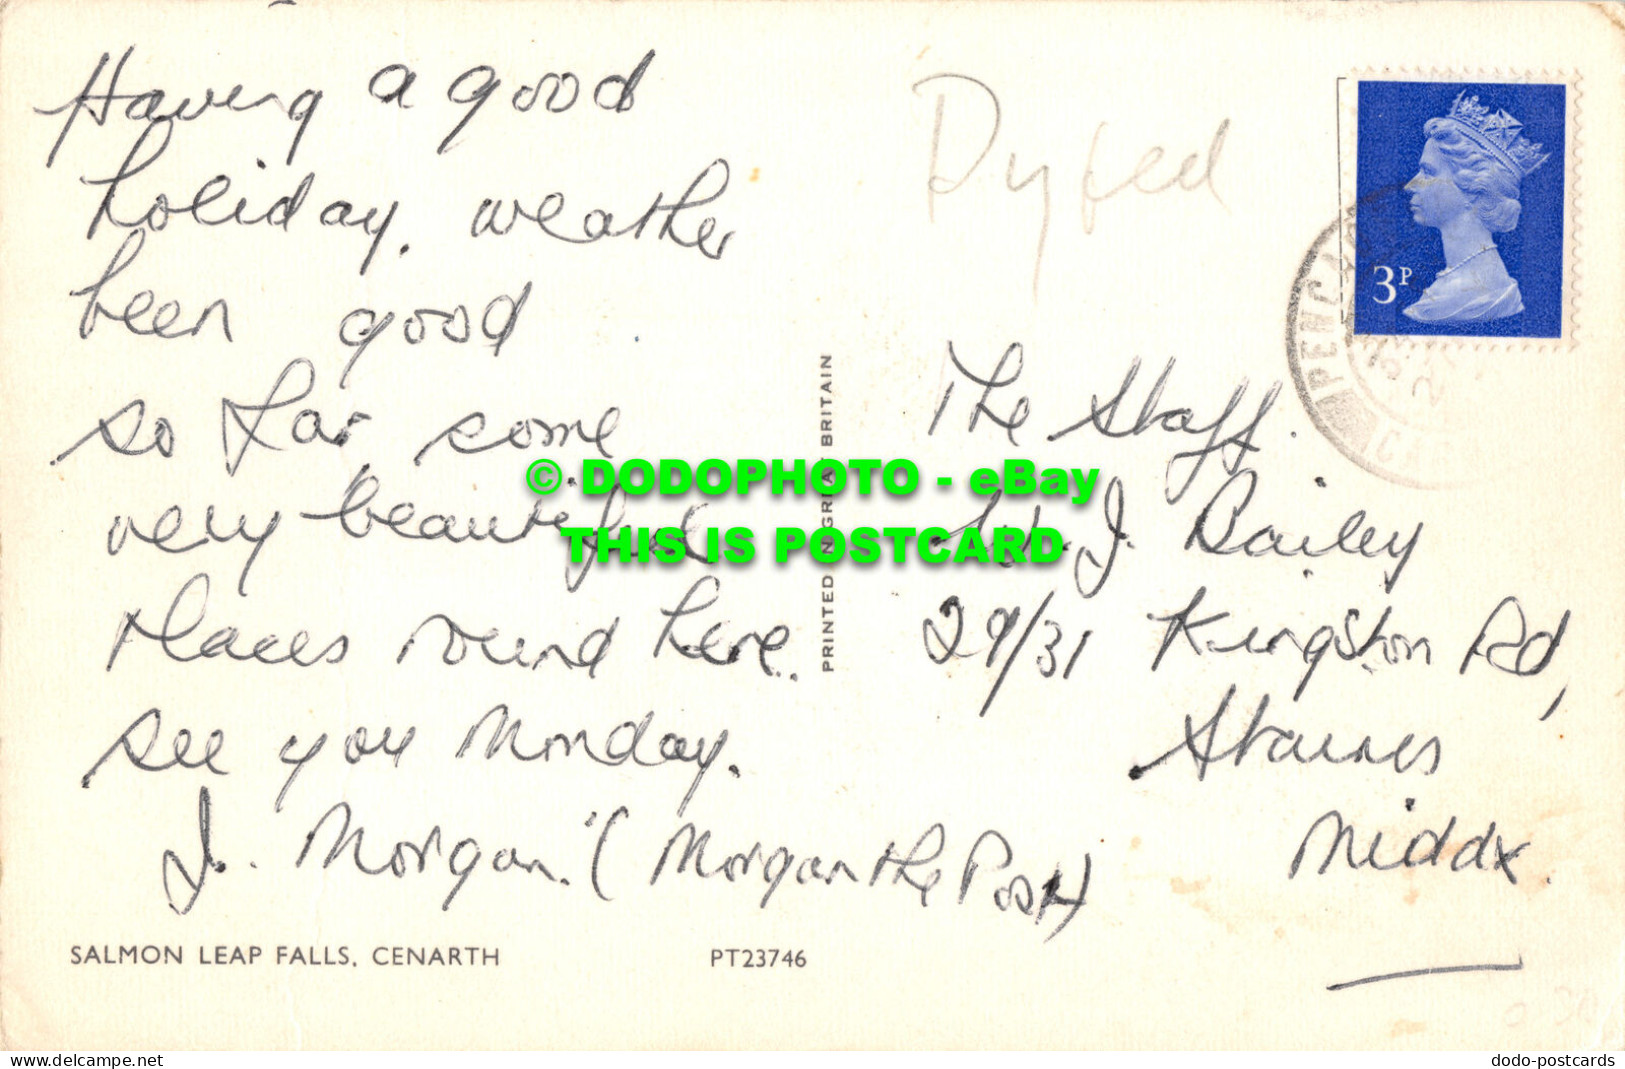 Having a good
holiday. weather
been good
so far some
very beautiful
places round here.
see you Monday.
J. Morgan. (Morgan the Post)
SALMON LEAP FALLS, CENARTH
PT23746
PRINTED IN GREAT BRITAIN
Dyfed
3P
PENCA
CAR
The Staff.
W. J. Bailey
29/31 Kingston Rd,
Staines
Middx.
© DODOPHOTO - eBay
THIS IS POSTCARD
www.delcampe.net
dodo-postcards